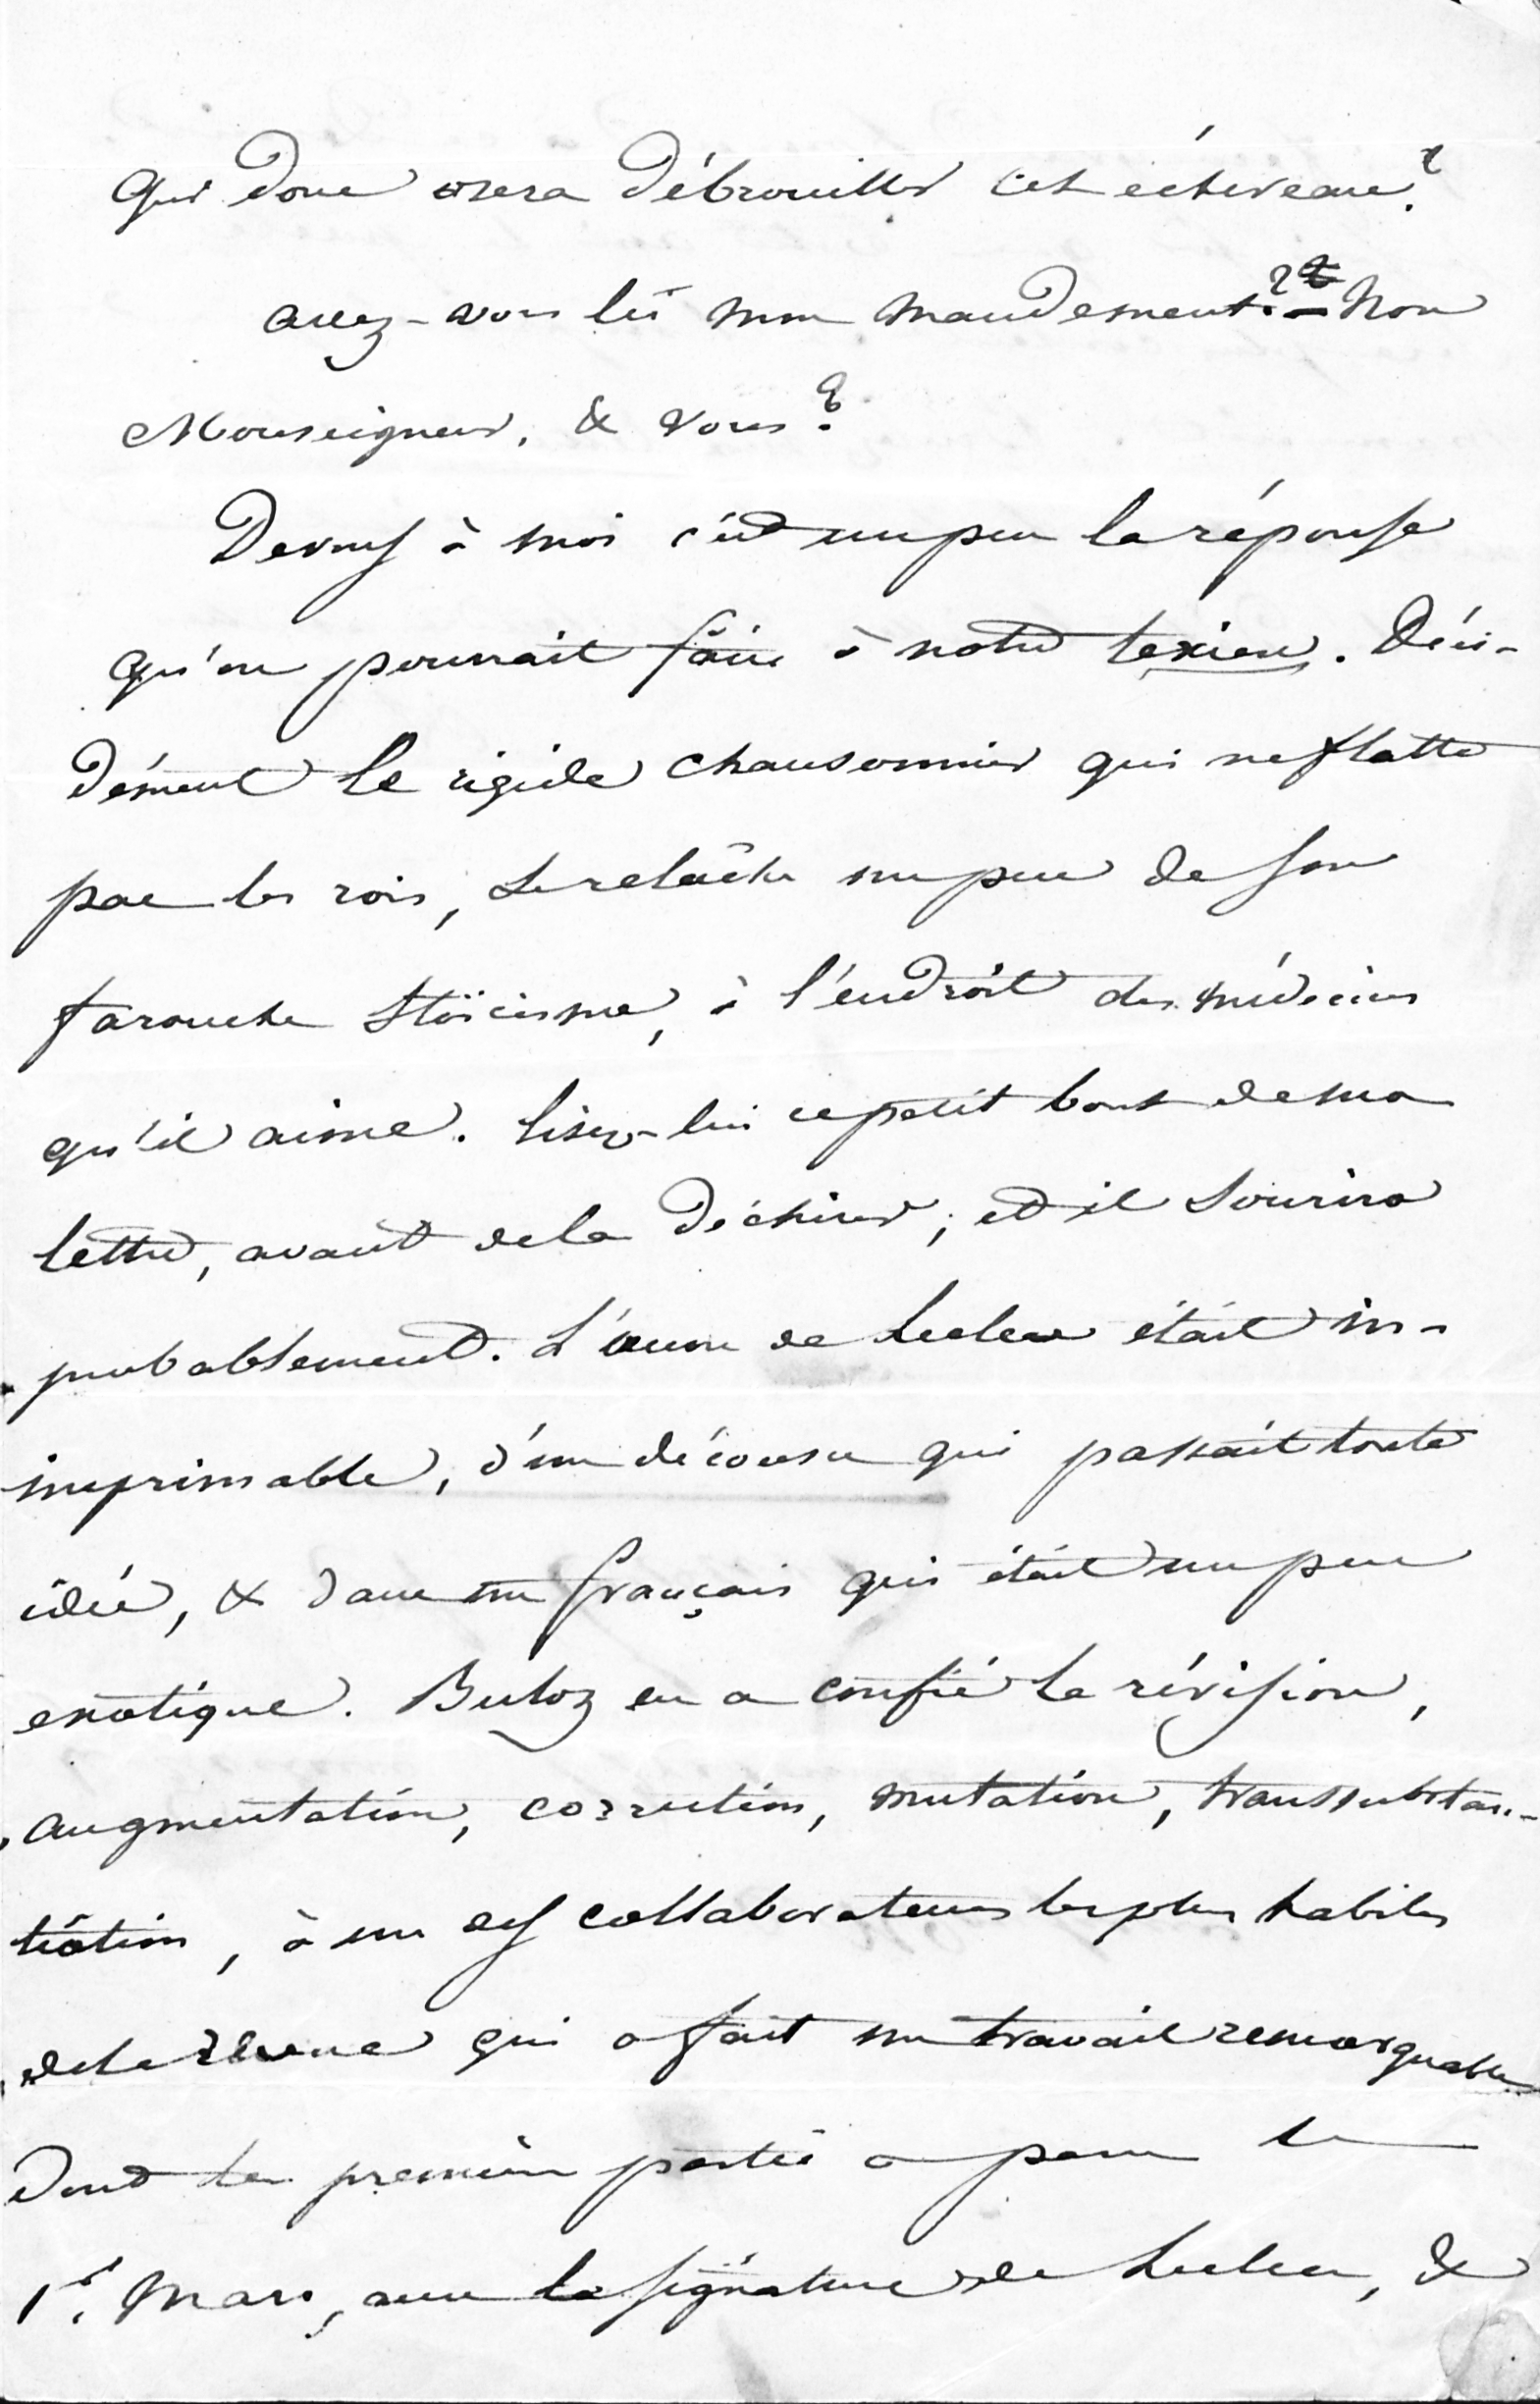 Qui donc osera débrouiller cet écheveau?
avez-vous lû mon mandement? – Non
Monseigneur, & vous?
De vous à moi c'est un peu la réponse
qu'on pourrait faire à notre texier. Déci-
dément le rigide chansonnier qui ne flatte
pas les rois, se relâche un peu de son
farouche stoïcisme, à l'endroit des médecins
qu'il aime. Lisez-lui ce petit bout de ma
lettre, avant de la déchirer, et il sourira
probablement. L'œuvre de était in-
imprimable, d'un décousu qui passait toute
idée, & dans un français qui était un peu
exotique. Buloz en a confié la révision,
augmentation, correction, mutation, transsubstan-
tiation, à un des collaborateurs les plus habiles
de la revue qui a fait un travail remarquable
dont la première partie a paru le
1er. Mars, avec la signature de &